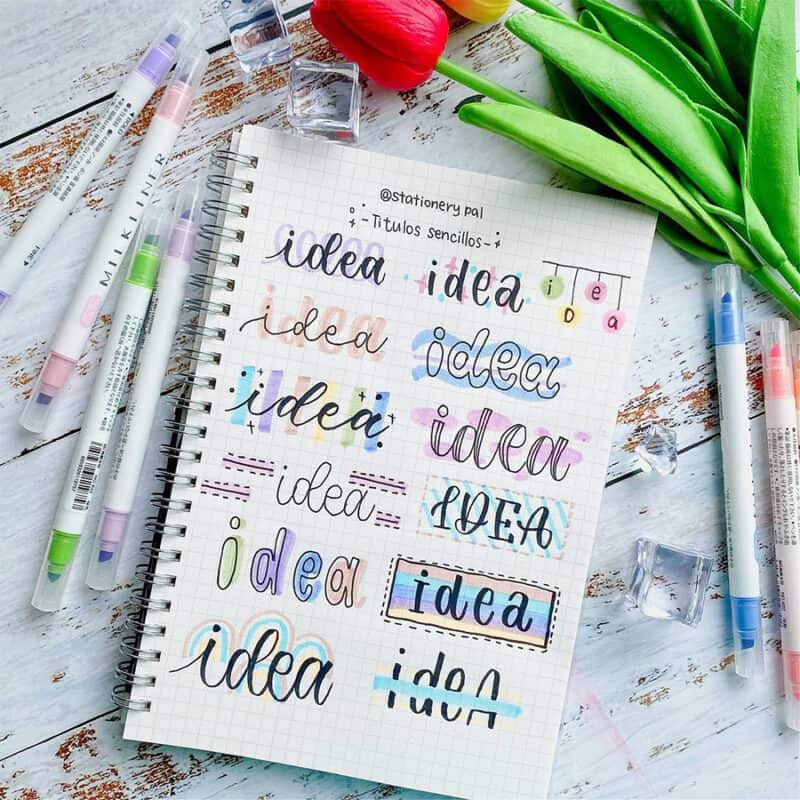 @stationery pal
- Titulos sencillos -
idea idea idea
idea idea
idea idea
idea IDEA
idea idea
idea ideA
MILKLINER